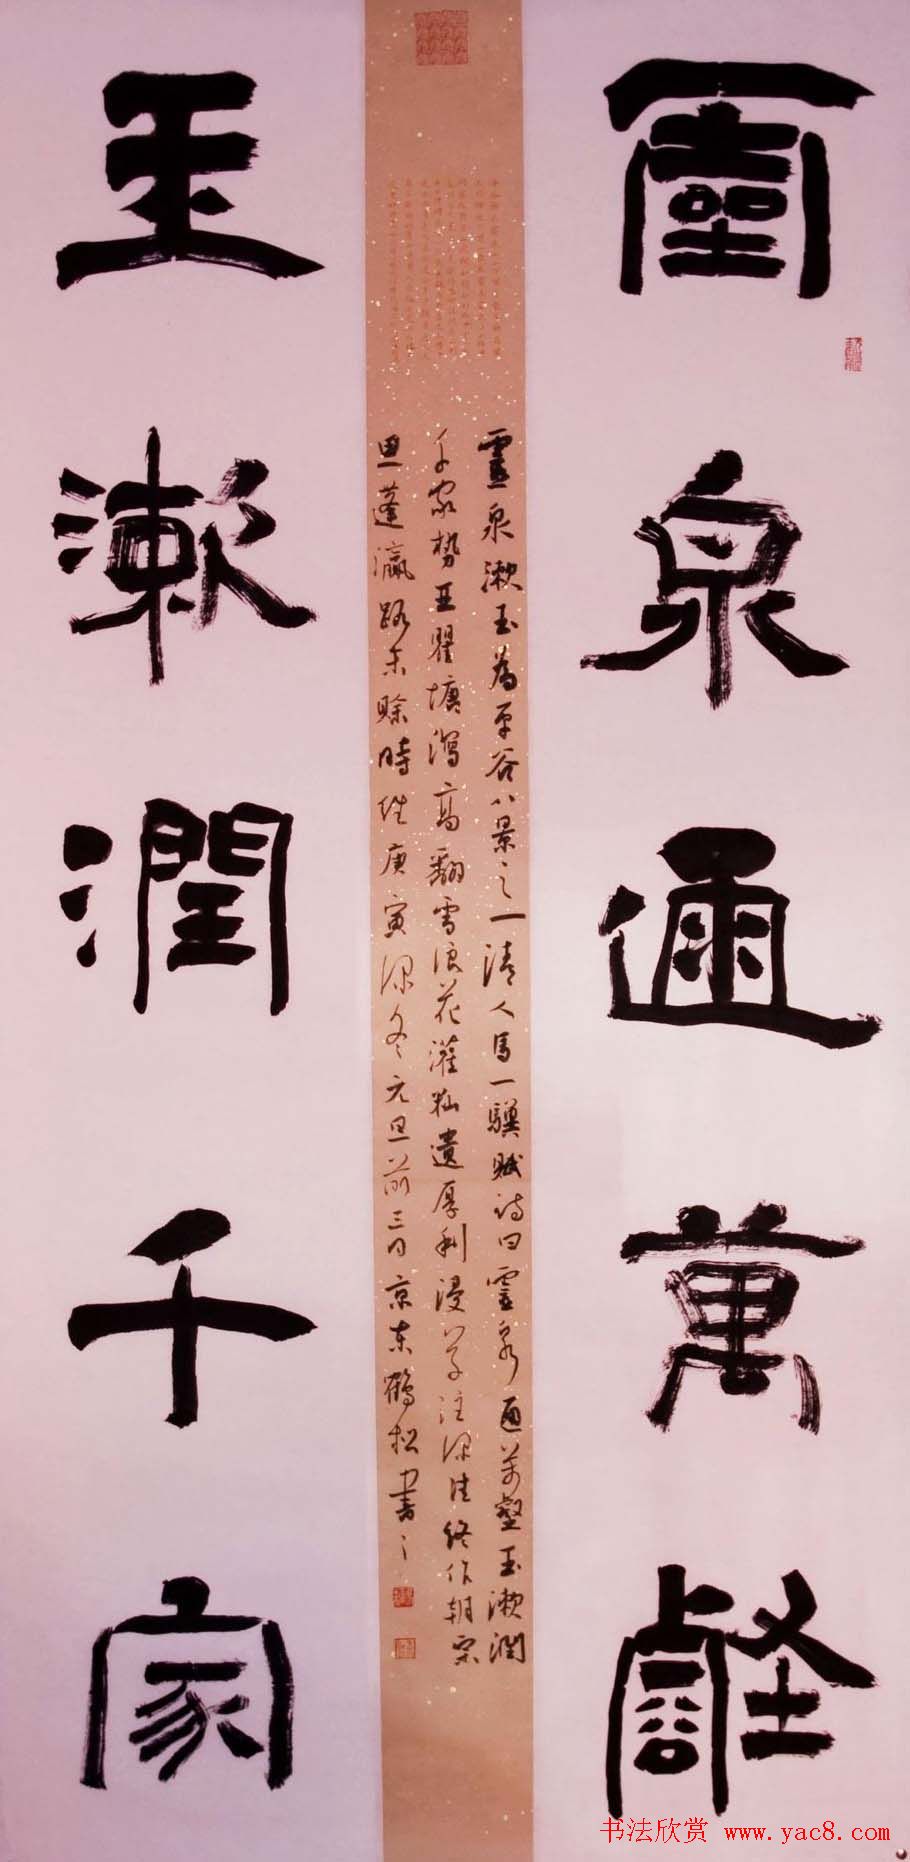 靈泉通萬壑
靈泉漱玉為平谷八景之一清人馬一驥賦詩曰靈泉通万壑玉漱潤
千家勢亞瞿塘瀉高翻雪浪花灌秈遺厚利浸芋注深洼終作朝宗
思蓬瀛路未賒時維庚寅深冬元旦前三日京东鶴松書之
玉漱潤千家
书法欣赏 www.yac8.com